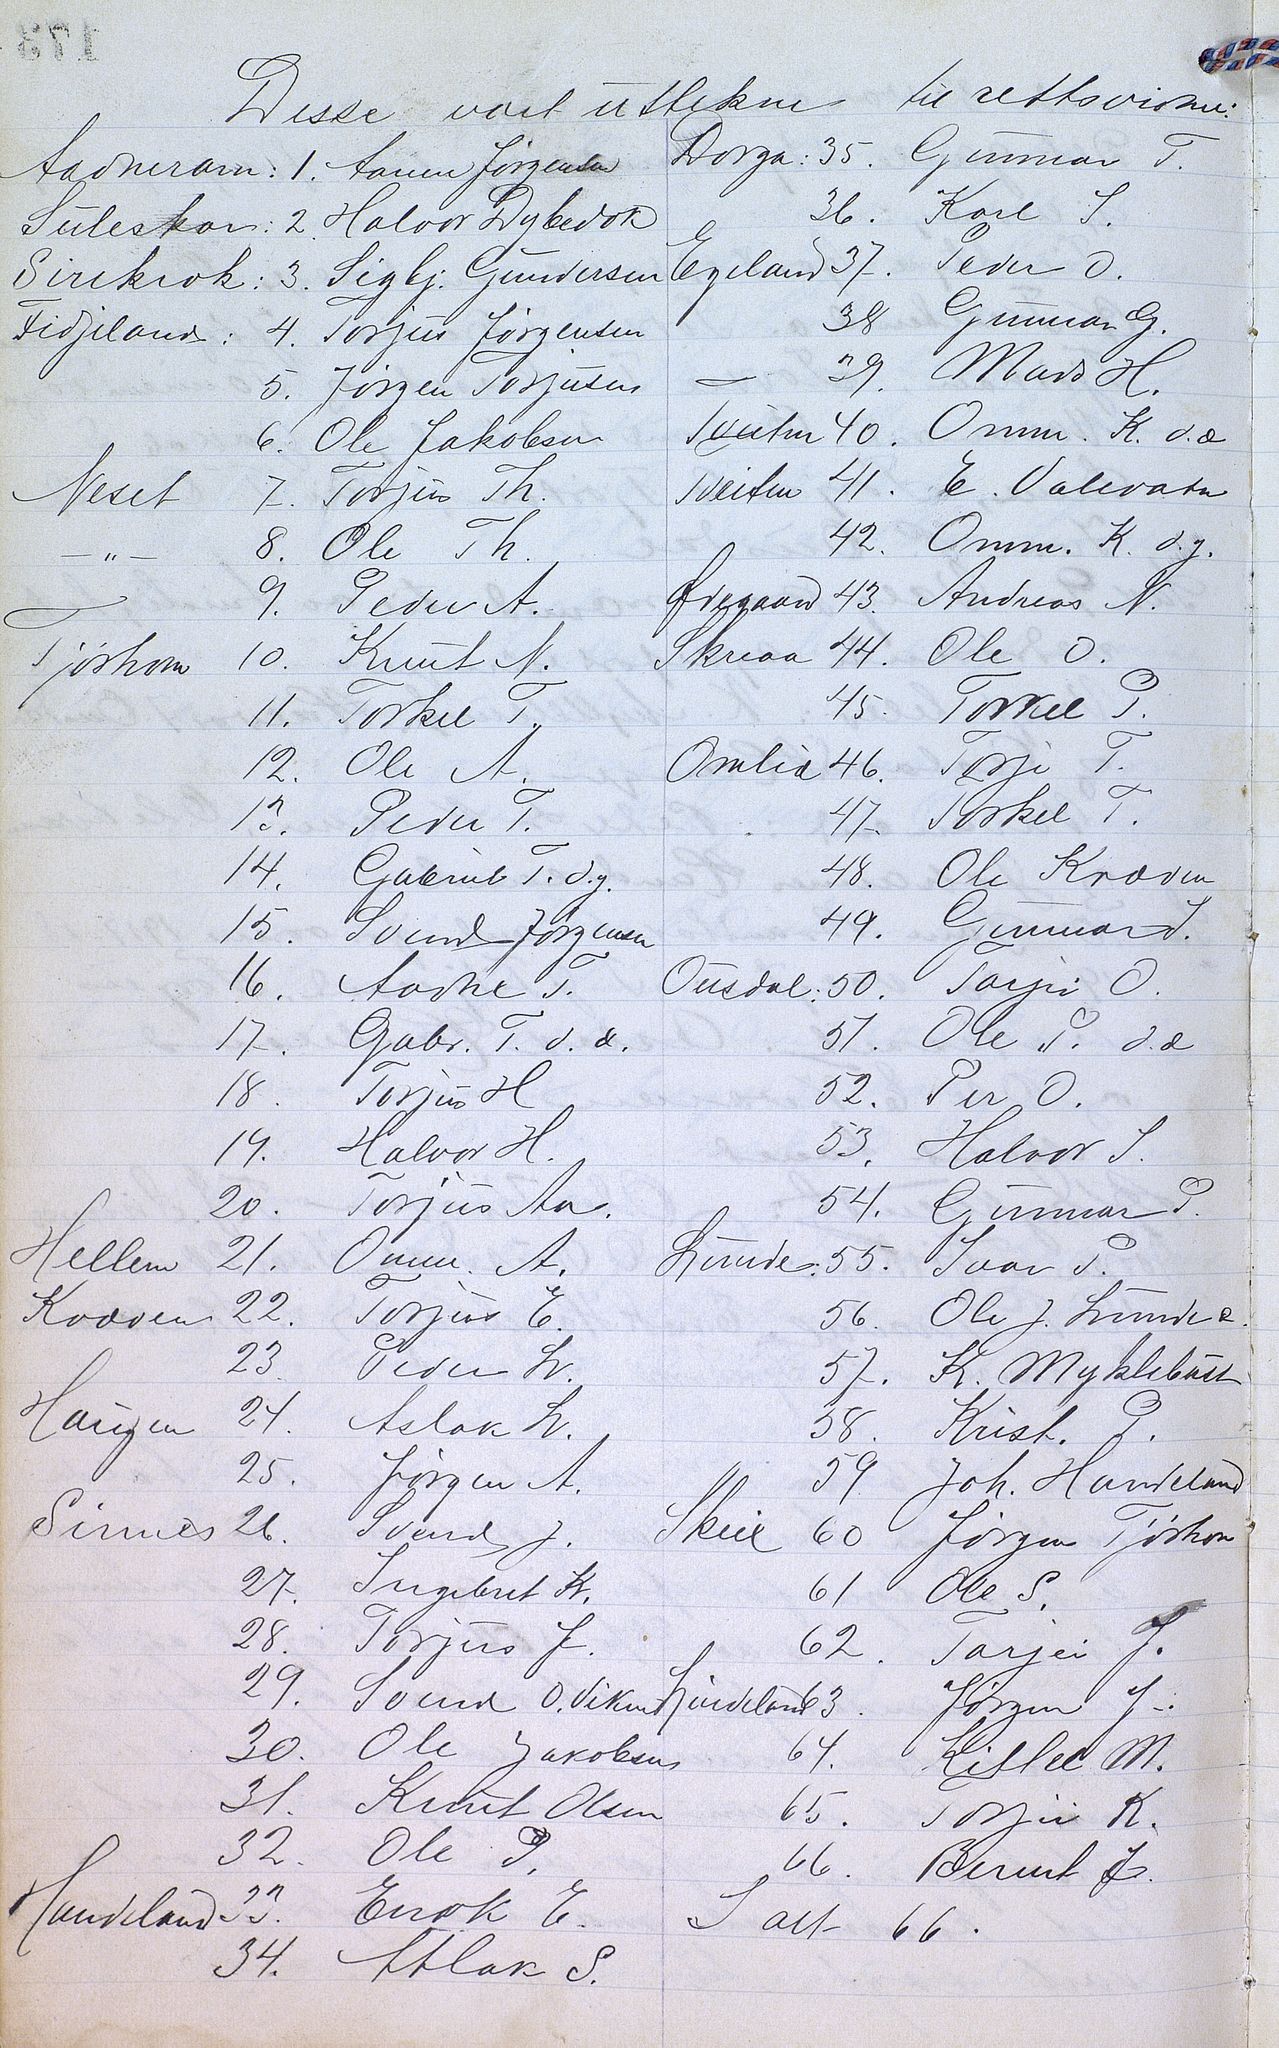 Disse vart uttekne til rettsvidne:
Aadneram: 1. Aanen Jørgensen
Suleskar: 2. Halvor Dybedok
Sirekrok: 3. Sigbj. Gundersen
Fidjeland: 4. Torjus Jørgensen
5. Jørgen Torjusen
6. Ole Jakobsen
Neset 7. Torjus Th.
—"— 8. Ole Th.
9. Peder A.
Tjörhom 10. Knut N.
11. Torkel T.
12. Ole A.
13. Peder T.
14. Gabriel T. d.y.
15. Svend Jørgensen
16. Aadne T.
17. Gabr. T. d. æ.
18. Torjus H
19. Halvor H.
20. Torjus Aa.
Hellem 21. Omm. A.
Kvæven 22. Torjus E.
23. Peder Kr.
Haugen 24. Aslak Kr.
25. Jørgen A.
Sinnes 26. Svend J.
27. Ingebret K.
28. Torjus J.
29. Svend O. Viken
30. Ole Jakobsen
31. Knut Olsen
32. Ole P.
Handeland 33. Enok E.
34. Atlak S.
Dorga: 35. Gunnar T.
36. Karl S.
Egeland 37. Peder O.
38 Gunnar G.
— 39. Mads H.
Tveiten 40. Omm. K. d.æ
Tveiten 41. E. Valevatn
42. Omm. K. d.y.
Ødegaard 43. Andreas N.
Skreaa 44. Ole O.
45. Torkel P.
Omlid 46. Torje T.
47. Torkel T.
48. Ole Kvæven
49. Gunnar S.
Ousdal: 50. Tarjei O.
51. Ole P. d.æ
52. Per O.
53. Halvor S.
54. Gunnar P.
Lunde: 55. Ivar P.
56. Ole J. Lunde
57. K. Myklebust
58. Krist. P.
59 Joh. Handeland
Skeie 60 Jørgen Tjörhom
61 Ole S.
62. Tarjei J.
Ljosdeland 63. Jörgen J.
64. Kittel M.
65. Torjei K.
66. Berent J.
I alt 66.
173